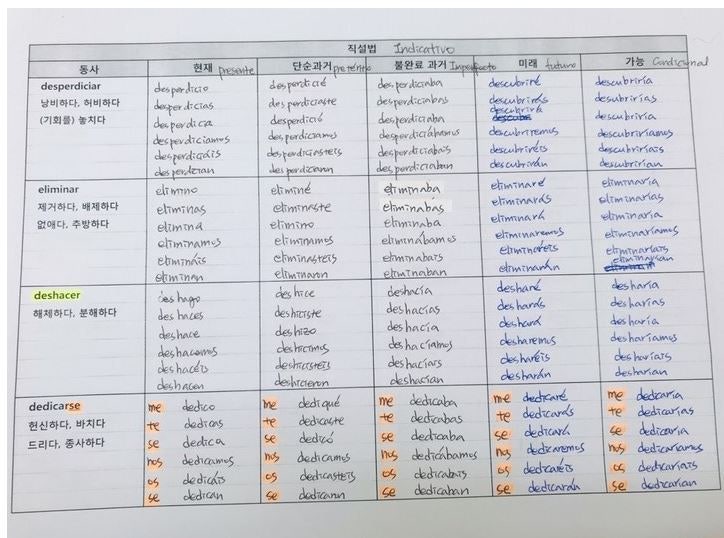 직설법 Indicativo
동사 현재 presente 단순과거 pretérito 불완료 과거 Imperfecto 미래 futuro 가능 Condicional
desperdiciar desperdicio desperdicié desperdiciaba descubriré descubriría
낭비하다, 허비하다 desperdicias desperdiciaste desperdiciabas descubrirás descubrirías
(기회를) 놓치다 desperdicia desperdició desperdiciaba descubrirá descubriría
desperdiciamos desperdiciamos desperdiciábamos descubriremos descubriríamos
desperdiciáis desperdiciasteis desperdiciabais descubriréis descubriríais
desperdician desperdiciaron desperdiciaban descubrirán descubrirían
eliminar elimino eliminé eliminaba eliminaré eliminaría
제거하다, 배제하다 eliminas eliminaste eliminabas eliminarás eliminarías
없애다, 추방하다 elimina elimino eliminaba eliminará eliminaría
eliminamos eliminamos eliminábamos eliminaremos eliminaríamos
elimináis eliminasteis eliminabais eliminaréis eliminaríais
eliminan eliminaron eliminaban eliminarán eliminarían
deshacer deshago deshice deshacía desharé desharía
해체하다, 분해하다 deshaces deshiciste deshacías desharás desharías
deshace deshizo deshacía deshará desharía
deshacemos deshicimos deshacíamos desharemos desharíamos
deshacéis deshicisteis deshacíais desharéis desharíais
deshacen deshicieron deshacían desharán desharían
dedicarse me dedico me dediqué me dedicaba me dedicaré me dedicaría
헌신하다, 바치다 te dedicas te dedicaste te dedicabas te dedicarás te dedicarías
드리다, 종사하다 se dedica se dedicó se dedicaba se dedicará se dedicaría
nos dedicamos nos dedicamos nos dedicábamos nos dedicaremos nos dedicaríamos
os dedicáis os dedicasteis os dedicabais os dedicaréis os dedicaríais
se dedican se dedicaron se dedicaban se dedicarán se dedicarían